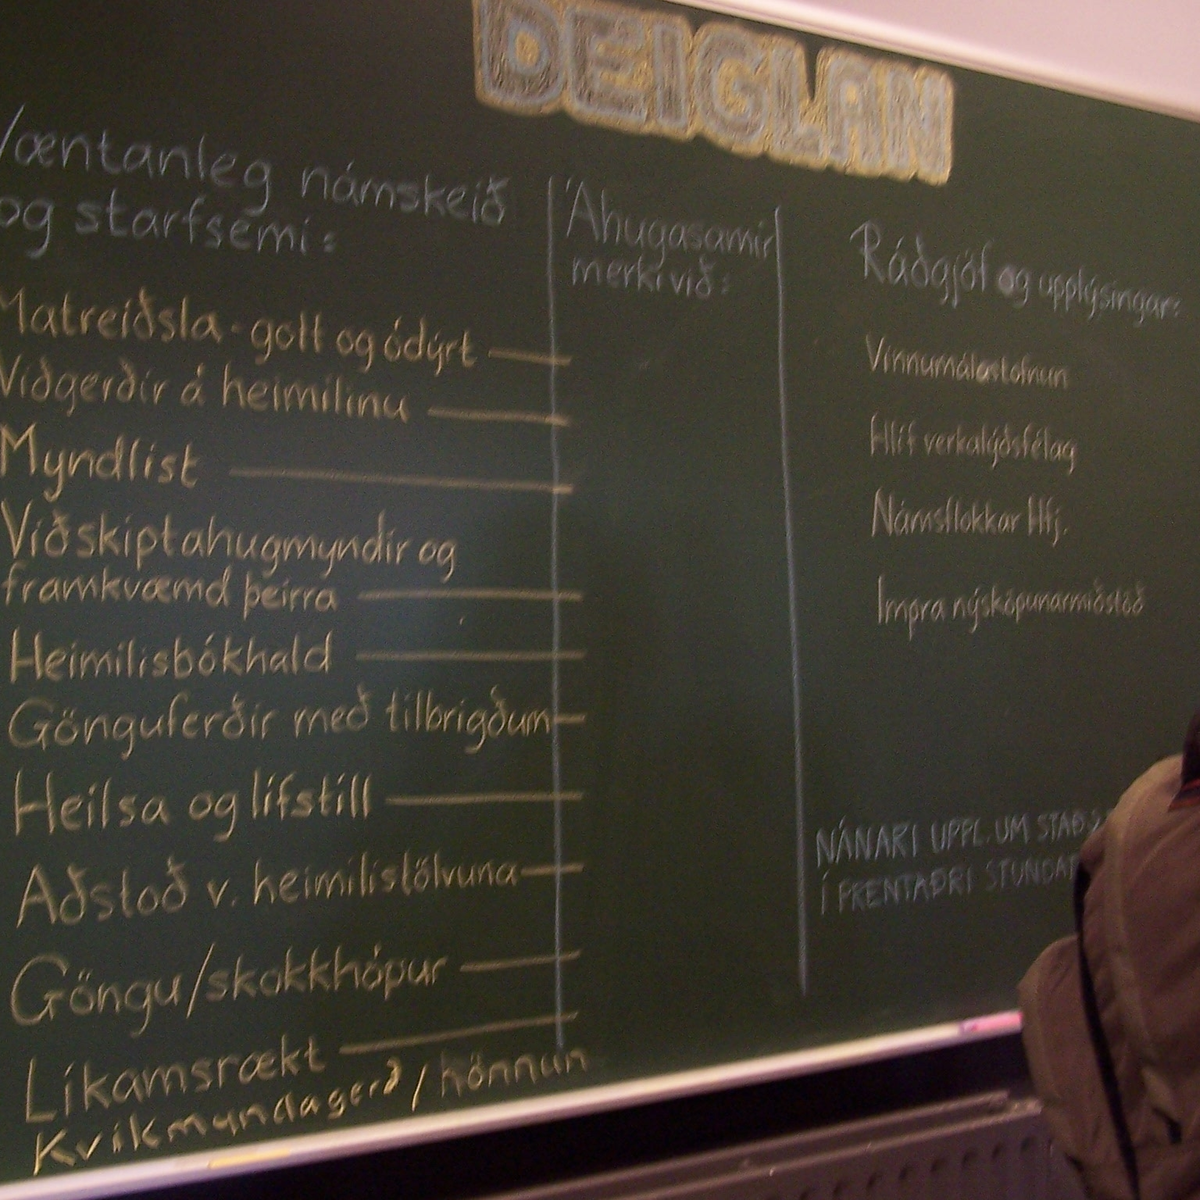 DEIGLAN
Væntanleg námskeið
og starfsemi:
Matreiðsla - gott og ódýrt
Viðgerðir á heimilinu
Myndlist
Viðskiptahugmyndir og
framkvæmd þeirra
Heimilisbókhald
Gönguferðir með tilbrigðum
Heilsa og lífstíll
Aðstoð v. heimilistölvuna
Göngu/skokkhópur
Líkamsrækt
Kvikmyndagerð / hönnun
Áhugasamir
merki við:
Ráðgjöf og upplýsingar:
Vinnumálastofnun
Hlíf verkalýðsfélag
Námsflokkar Hfj.
Impra nýsköpunarmiðstöð
NÁNARI UPPL. UM STAÐ
Í PRENTAÐRI